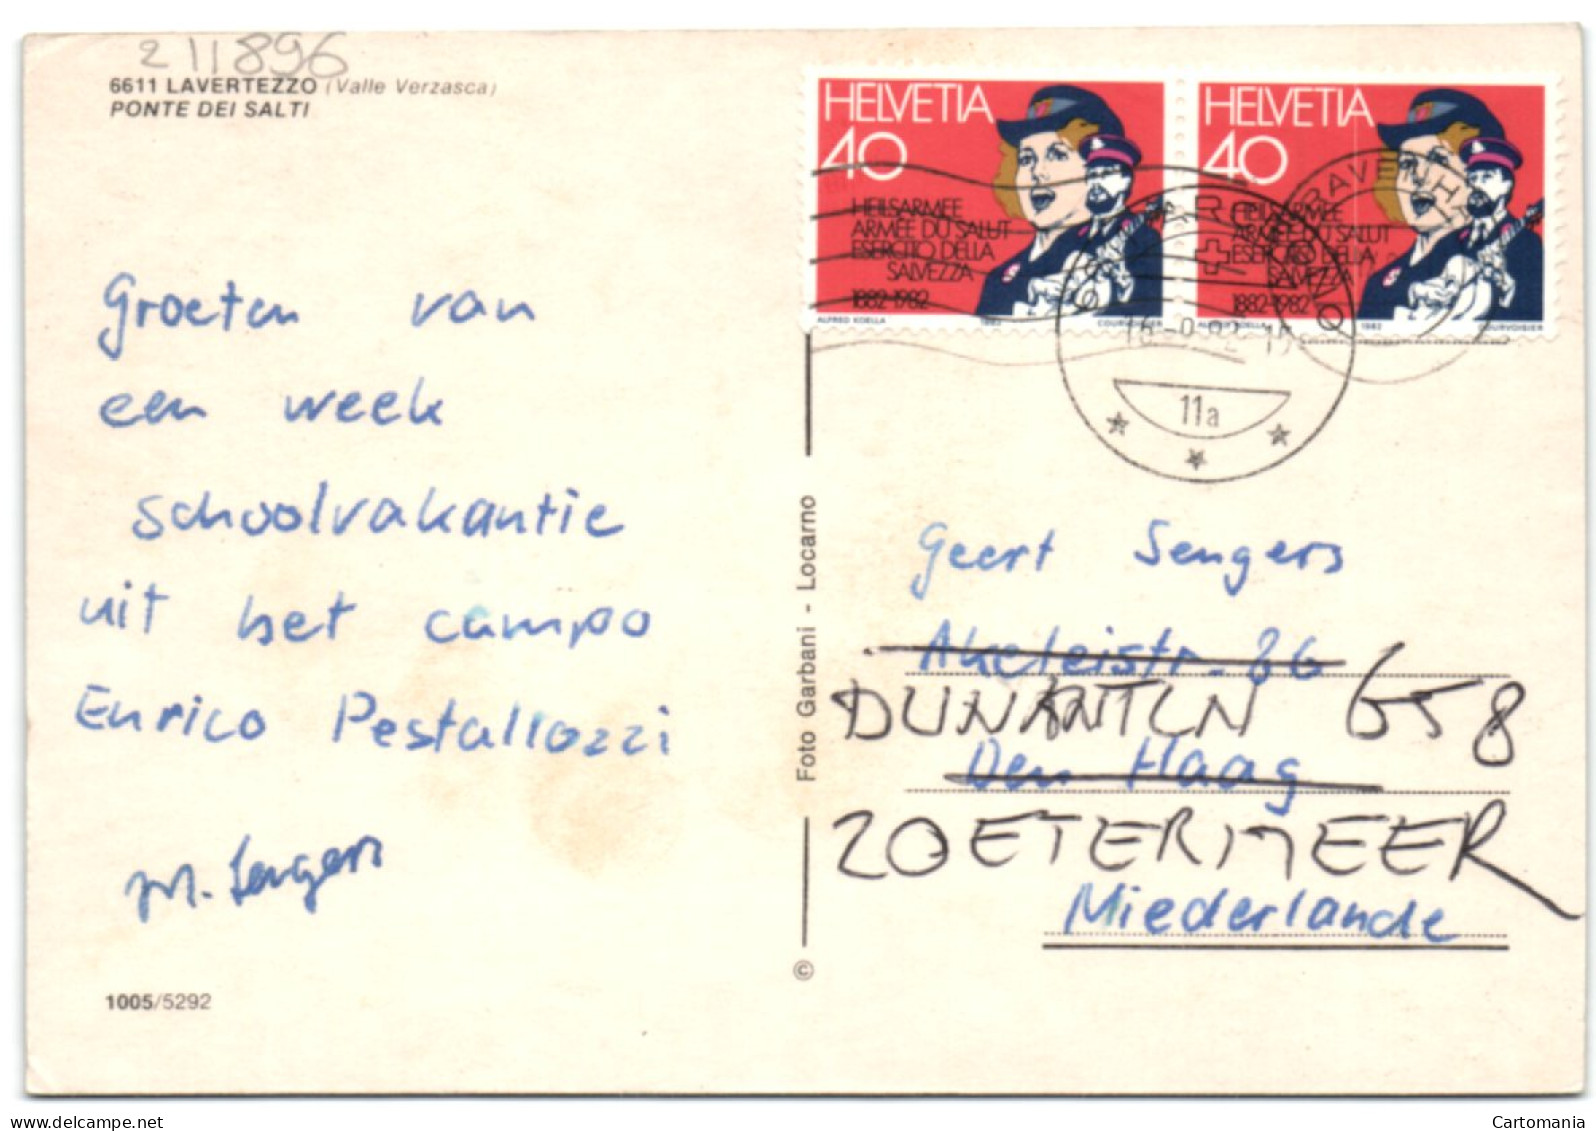 211896
6611 LAVERTEZZO (Valle Verzasca)
PONTE DEI SALTI
HELVETIA
40
HEILSARMEE
ARMÉE DU SALUT
ESERCITO DELLA
SALVEZZA
1882-1982
ALFRED KOELLA 1982 COURVOISIER
HELVETIA
40
HEILSARMEE
ARMÉE DU SALUT
ESERCITO DELLA
SALVEZZA
1882-1982
ALFRED KOELLA 1982 COURVOISIER
11a
Groeten van
een week
schoolvakantie
uit het campo
Enrico Pestallozzi
M. Sengers
Foto Garbani - Locarno
©
Geert Sengers
Akeleistr. 86
DUNANTLN 658
Den Haag
ZOETERMEER
Niederlande
1005/5292
delcampe.net
Cartomania